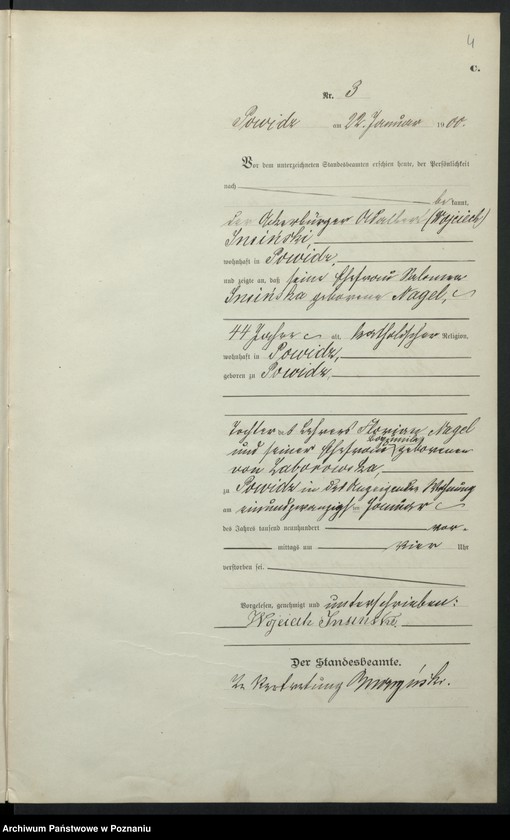 4
C.
Nr. 3
Powidz am 22. Januar 1900.
Vor dem unterzeichneten Standesbeamten erschien heute, der Persönlichkeit
nach be kannt,
der Ackerbürger Adalbert (Wojciech)
wohnhaft in Powidz,
und zeigte an, daß seine Ehefrau Salomea
geborene Nagel,
44 Jahre alt, katholischer Religion,
wohnhaft in Powidz,
geboren zu Powidz,
Tochter des Lehrers Florian Nagel
und seiner Ehefrau geborenen
von Zaborowska,
zu Powidz in des Anzeigenden Wohnung
am einundzwanzigsten Januar
des Jahres tausend neunhundert vor-
mittags um vier Uhr
verstorben sei.
Vorgelesen, genehmigt und unterschrieben:
Wojciech
Der Standesbeamte.
In Vertretung
Archiwum Państwowe w Poznaniu